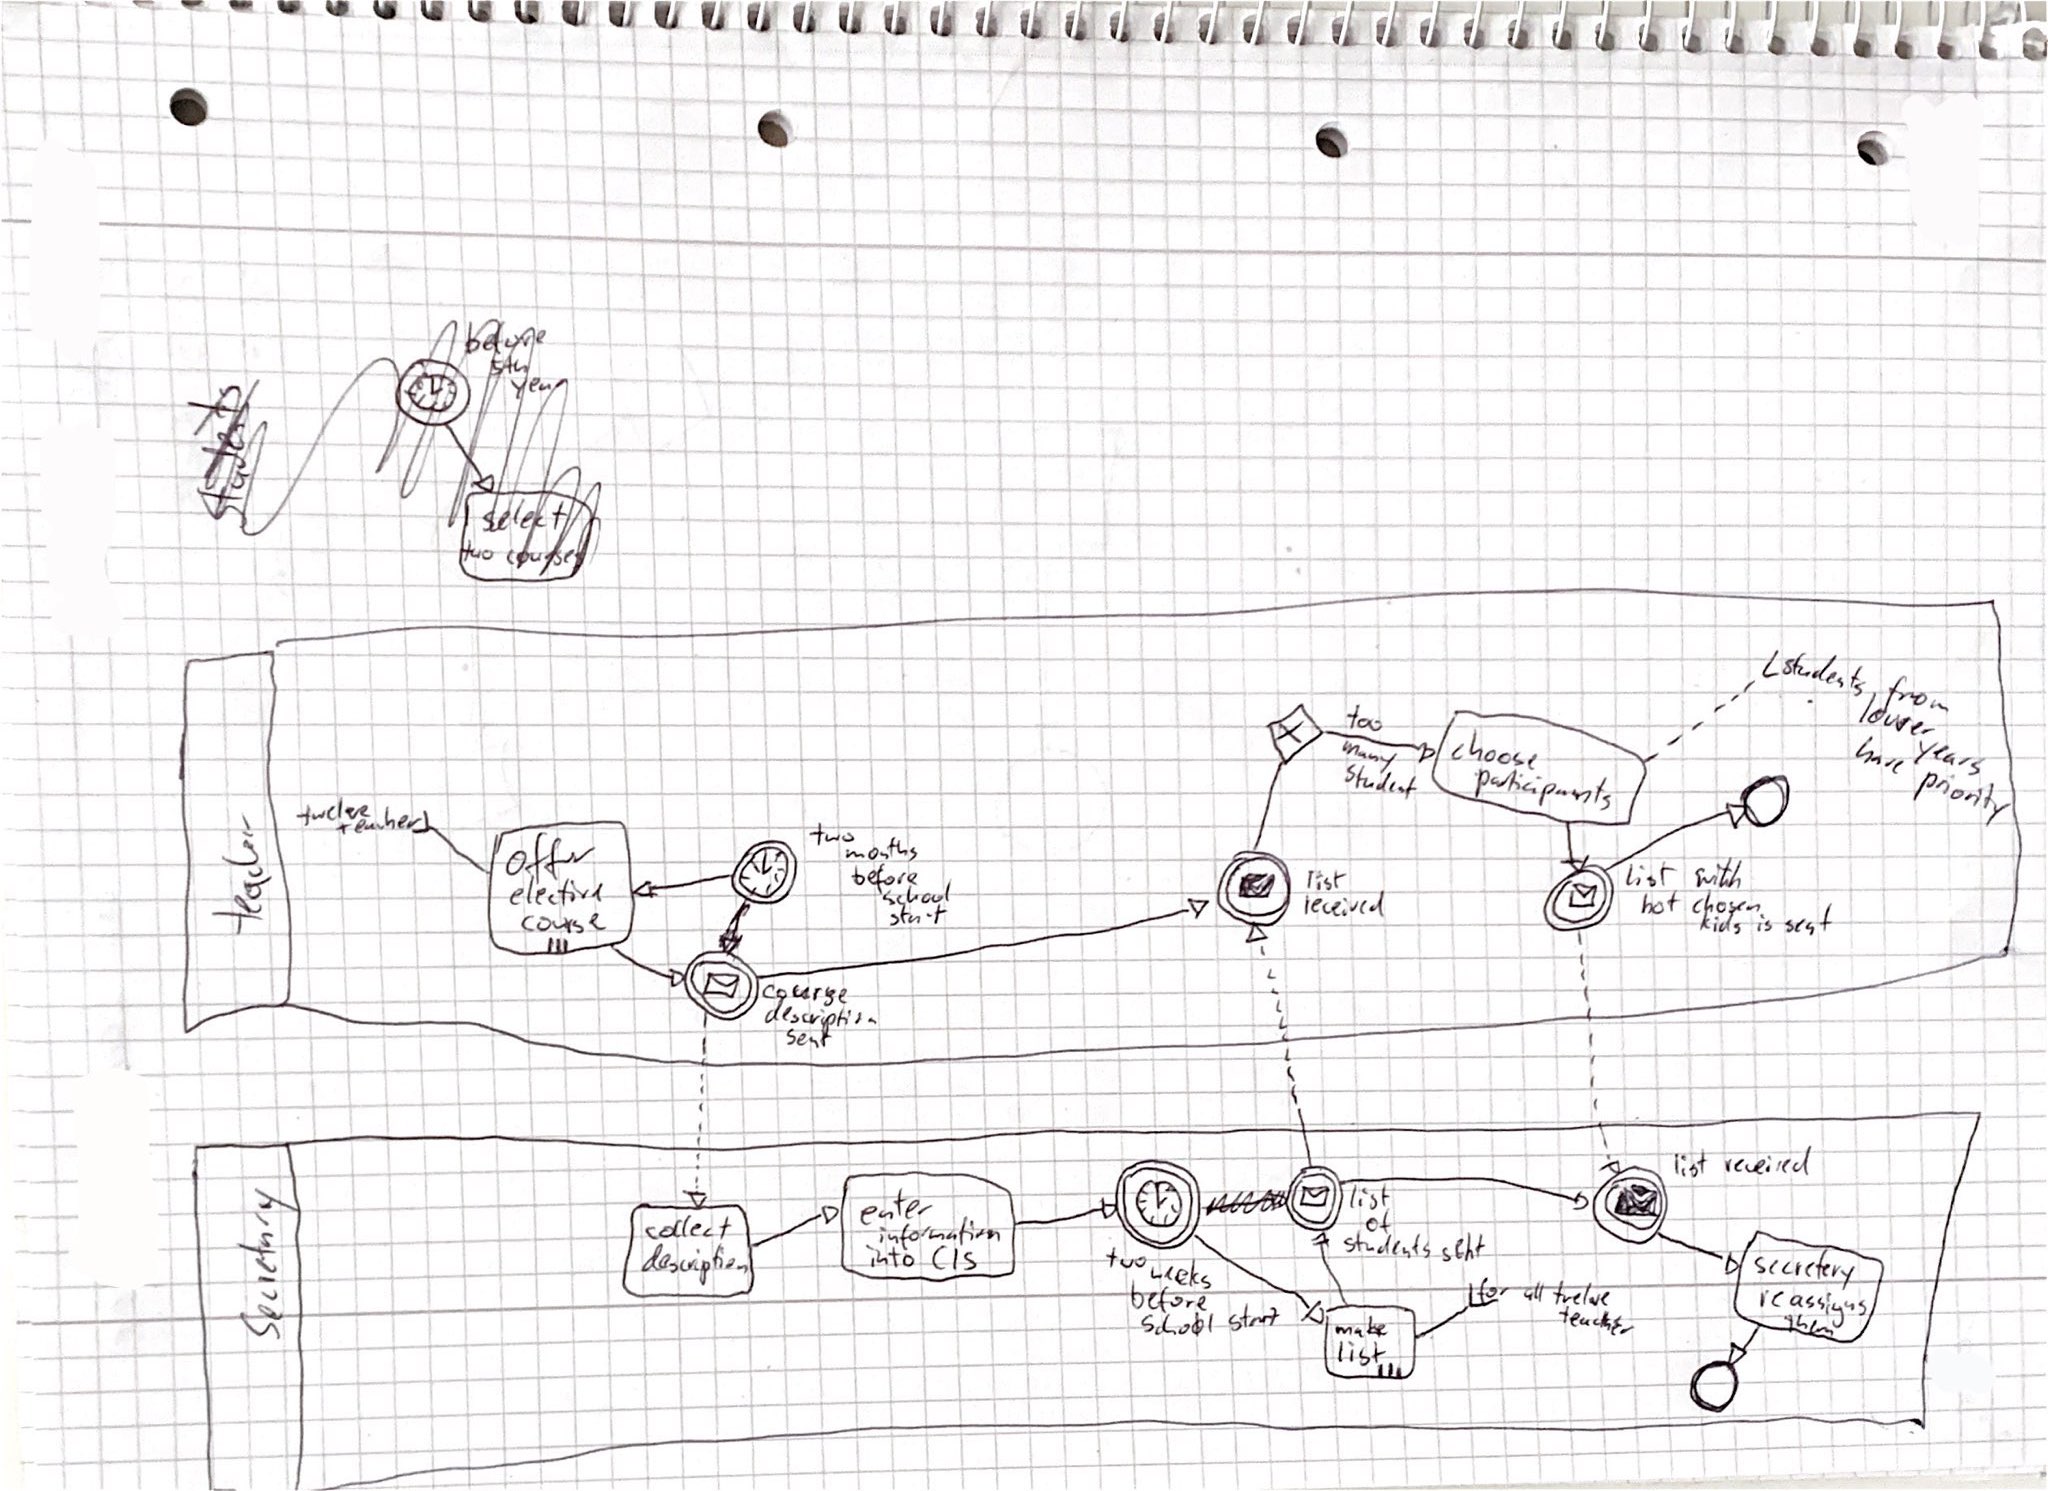 before
5th
year
students
select
two courses
teacher
twelve
teacher
offer
elective
course
two
months
before
school
start
course
description
sent
list
received
too
many
student
choose
participants
students from
lower
years
have priority
list with
not chosen
kids is sent
Secretary
collect
description
enter
information
into CIS
two weeks
before
school start
list
of
students sent
make
list
for all twelve
teacher
list received
secretery
reassigns
them